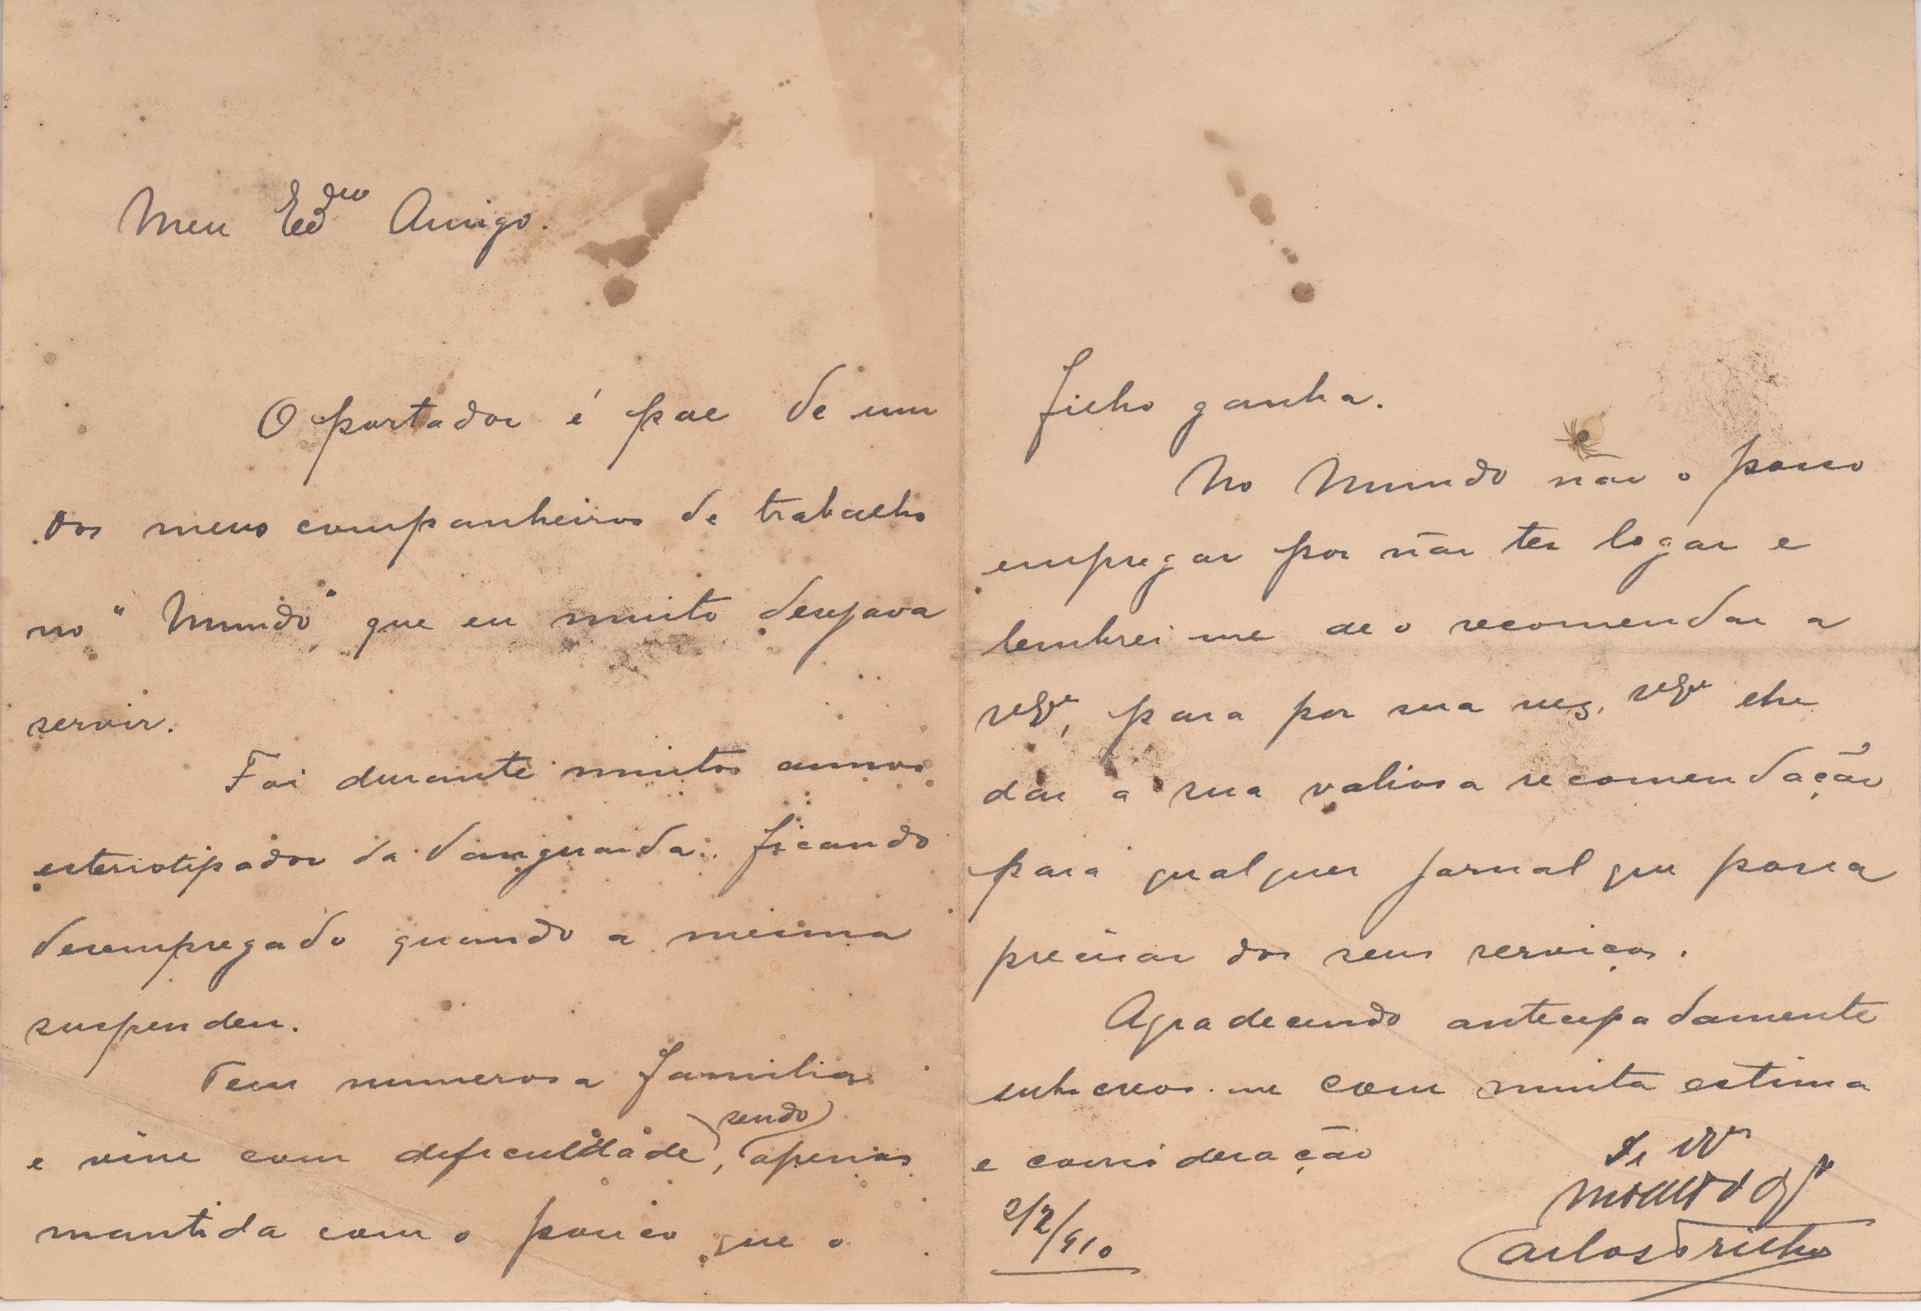 Meu Amigo.
O portador é pae de um
dos meus companheiros de trabalho
no "Mundo", que eu muito desejava
servir.
Foi durante muitos annos
esteriotipador da Vanguarda, ficando
desempregado quando a mesma
suspendeu.
Tem numerosa familia
sendo
e vive com deficuldade, apenas
mantida com o pouco que o
filho ganha.
No Mundo não o posso
empregar por não ter logar e
lembrei-me de o recomendar a
para por sua vez, lhe
dar a sua valiosa recomendação
para qualquer jornal que possa
precisar dos seus serviços.
Agradecendo antecipadamente
subscrevo-me com muita estima
e consideração
De
2/2/910
Carlos Trilho